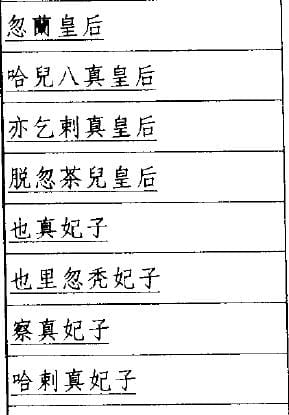 忽蘭皇后
哈兒八真皇后
亦乞剌真皇后
脱忽茶兒皇后
也真妃子
也里忽禿妃子
察真妃子
哈剌真妃子